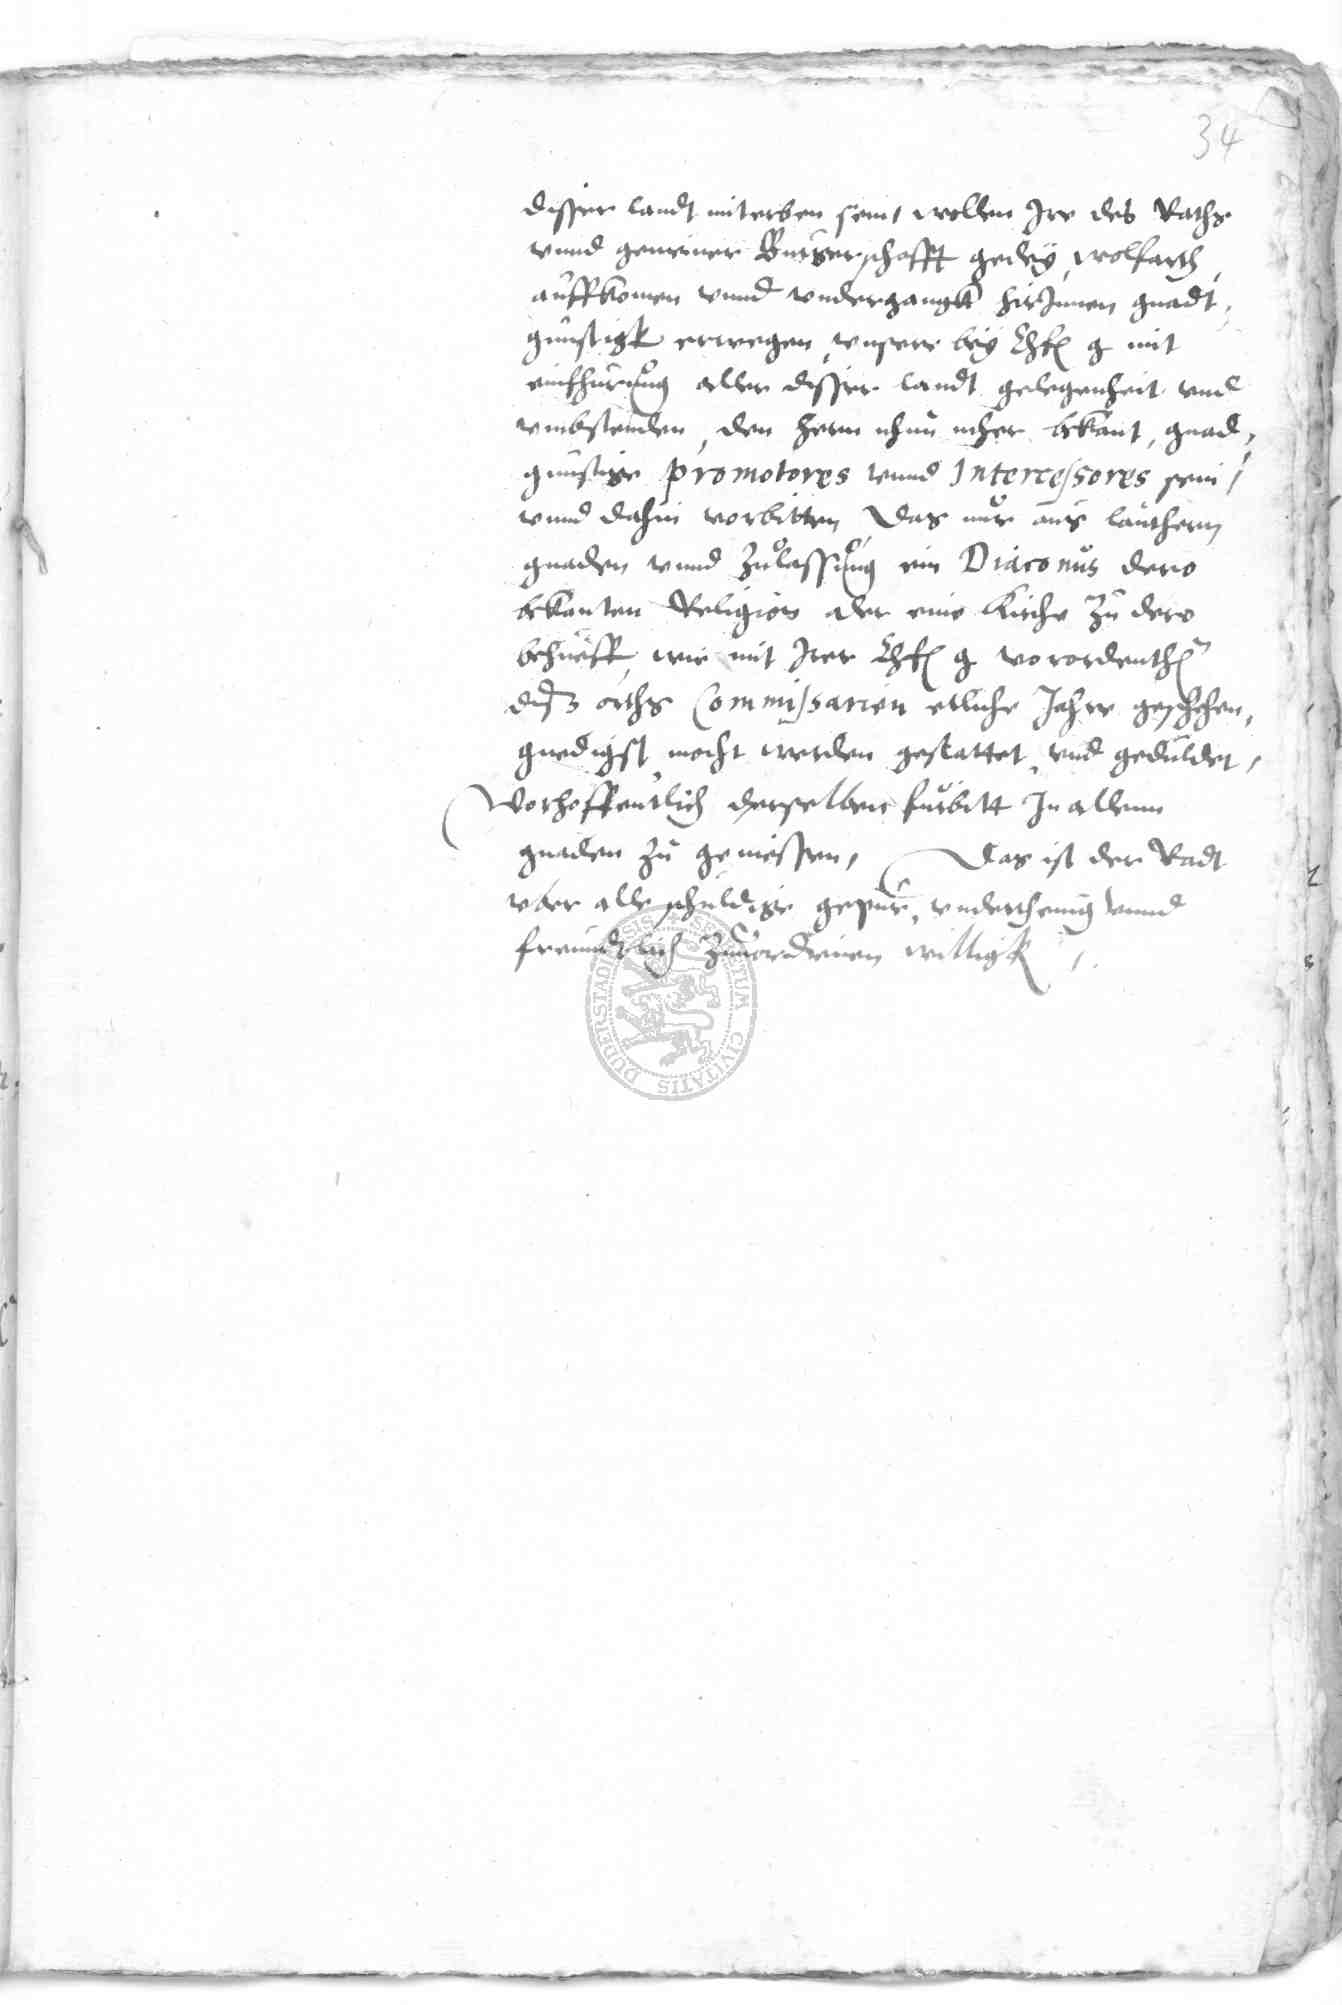 34
disser landt miterben sein, wollen Ire des Raths
vnnd gemeiner Burgerschafft gedey, wolfarth,
auffkomen vnnd vndergangk hirInnen gnadt,
gunstigk erwegen, vnsere bey Chf g mit
einfhurung aller disser landt gelegenheit vnd
vmbstenden, den hern nhun neher bekant, gnad,
gunstige promotores vnnd Intercessores sein,
vnnd dahin vorbitten, Das nur aus lauthern
gnaden vnnd zulassung ein Diaconus dero
bekanten Religion oder eine Kirche zu dero
behueff, wie mit Irer Chf g vorordenth
diß orths Commissarien etliche Jahre geschehen,
gnedigst mocht werden gestattet, vnd geduldet,
Vorhoffentlich derselben furbitt In allem
gnaden zu geniessen, Das ist der Radt
vber alle schuldige gepur, vnderthenig vnnd
freundtlich zuuordienen willigk,
SECRETUM CIVITATIS DUDERSTADIENSIS